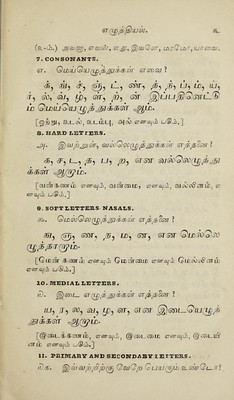 எழுத்தியல்.
(உ-ம்.) அவன், எவள், எது, இவளெ, மரமோ, யாவை.
7. CONSONANTS.
எ. மெய்யெழுத்துக்கள் எவை ?
க், ங், ச், ஞ், ட், ண், த், ந், ப், ம், ய்,
ர், ல், வ், ழ், ள், ற், ன் இப்பதினெட்டு
ம் மெய்யெழுத்துக்கள் ஆம்.
8. HARD LETTERS.
அ. இவற்றுள், வல்லெழுத்துக்கள் எத்தனை ?
க, ச, ட, த, ப, ற, என வல்லெழுத்து
க்கள் ஆறாம்.
[வன்கணம் எனவும், வன்மை, எனவும், வல்லினம், எ
னவும் படும்.]
9. SOFT LETTERS NASALS.
௯. மெல்லெழுத்துக்கள் எத்தனை ?
ங, ஞ, ண, ந, ம, ன, என மெல்லெ
ழுத்தாறாம்.
[மென் கணம் எனவும் மென்மை எனவும் மெல்லினம்
எனவும் படும்.]
10. MEDIAL LETTERS.
௰. இடை எழுத்துக்கள் எத்தனை ?
ய, ர, ல, வ, ழ, ள, என இடையெழுத்
துக்கள் ஆறாம்.
[இடைக்கணம், எனவும், இடைமை எனவும், இடையி
னம் எனவும் படும்.]
11. PRIMARY AND SECONDARY LETTERS.
௰௧. இவ்வற்றிற்கு வேறே பெயரும் உண்டோ!